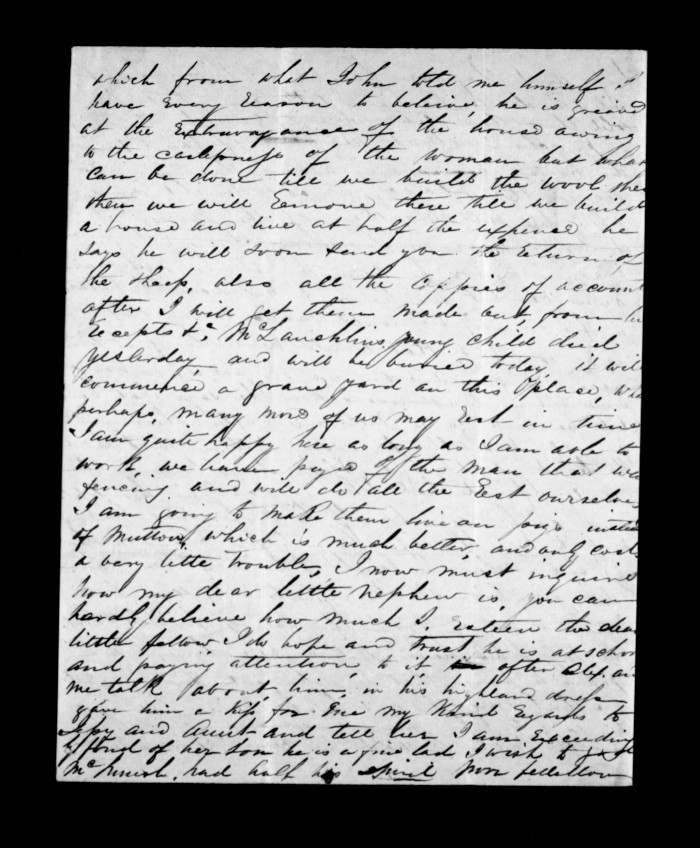 which from what John told me himself I
have every reason to believe, he is grieved
at the Extravagance of the house owing
to the carelessness of the woman but what
can be done till we build the wool shed
then we will Remove there till we build
a house and live at half the expense he
says he will soon send you the return of
the sheep, also all the Coppies of account
after I will get them made out, from
recepts &c. McLauchlins young child died
yesterday, and will be buried today, it will
commence a grave yard on this place, wh
perhaps, many more of us may Rest in time
I am quite happy here as long as I am able to
work, we have payed of the man that was
fencing and will do all the Rest ourselves
I am going to make them live on pigs instead
of Mutton, which is much better, and only costs
a very little trouble, I now must inquire
how my dear little nephew is, you can
hardly believe how much I Esteem the dear
little fellow, I do hope and trust he is at school
and paying attention to it after Alex and
me talk about him, in his highland dress
give him a kiss for me my Kind Regards to
and Aunt and tell her I am Exceeding
fond of her son he is a fine lad I wish to
had half his spirit